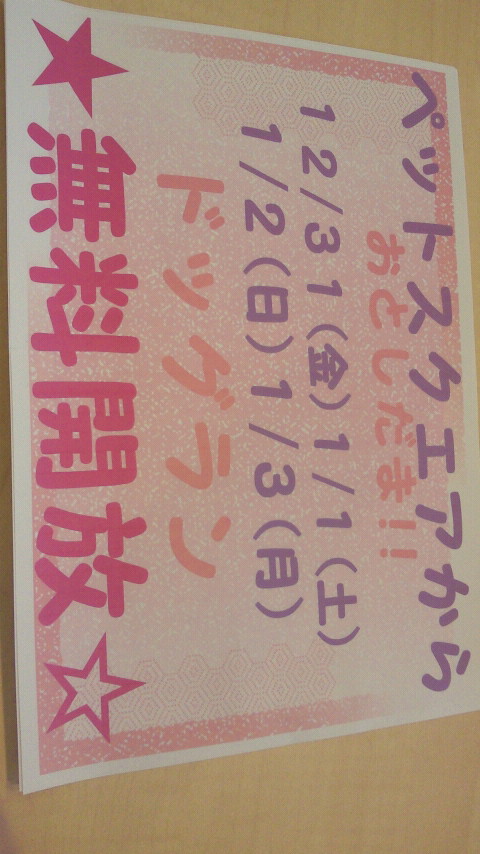 ペットスクエアから
おとしだま!!
12/31(金)1/1(土)
1/2(日)1/3(月)
ドッグラン
★無料開放☆